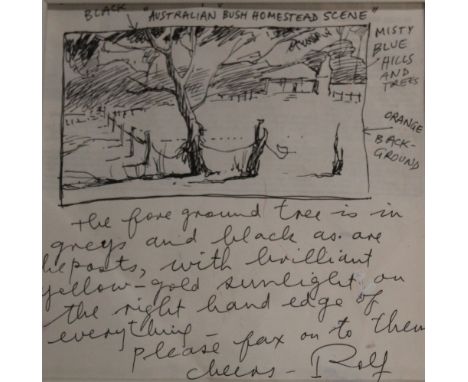 BLACK "AUSTRALIAN BUSH HOMESTEAD SCENE"
MISTY
BLUE
HILLS
AND
TREES
ORANGE
BACK-
GROUND
the foreground tree is in
greys and black as are
the posts, with brilliant
yellow-gold sunlight on
the right hand edge of
everything -
please fax on to them
cheers - Rolf